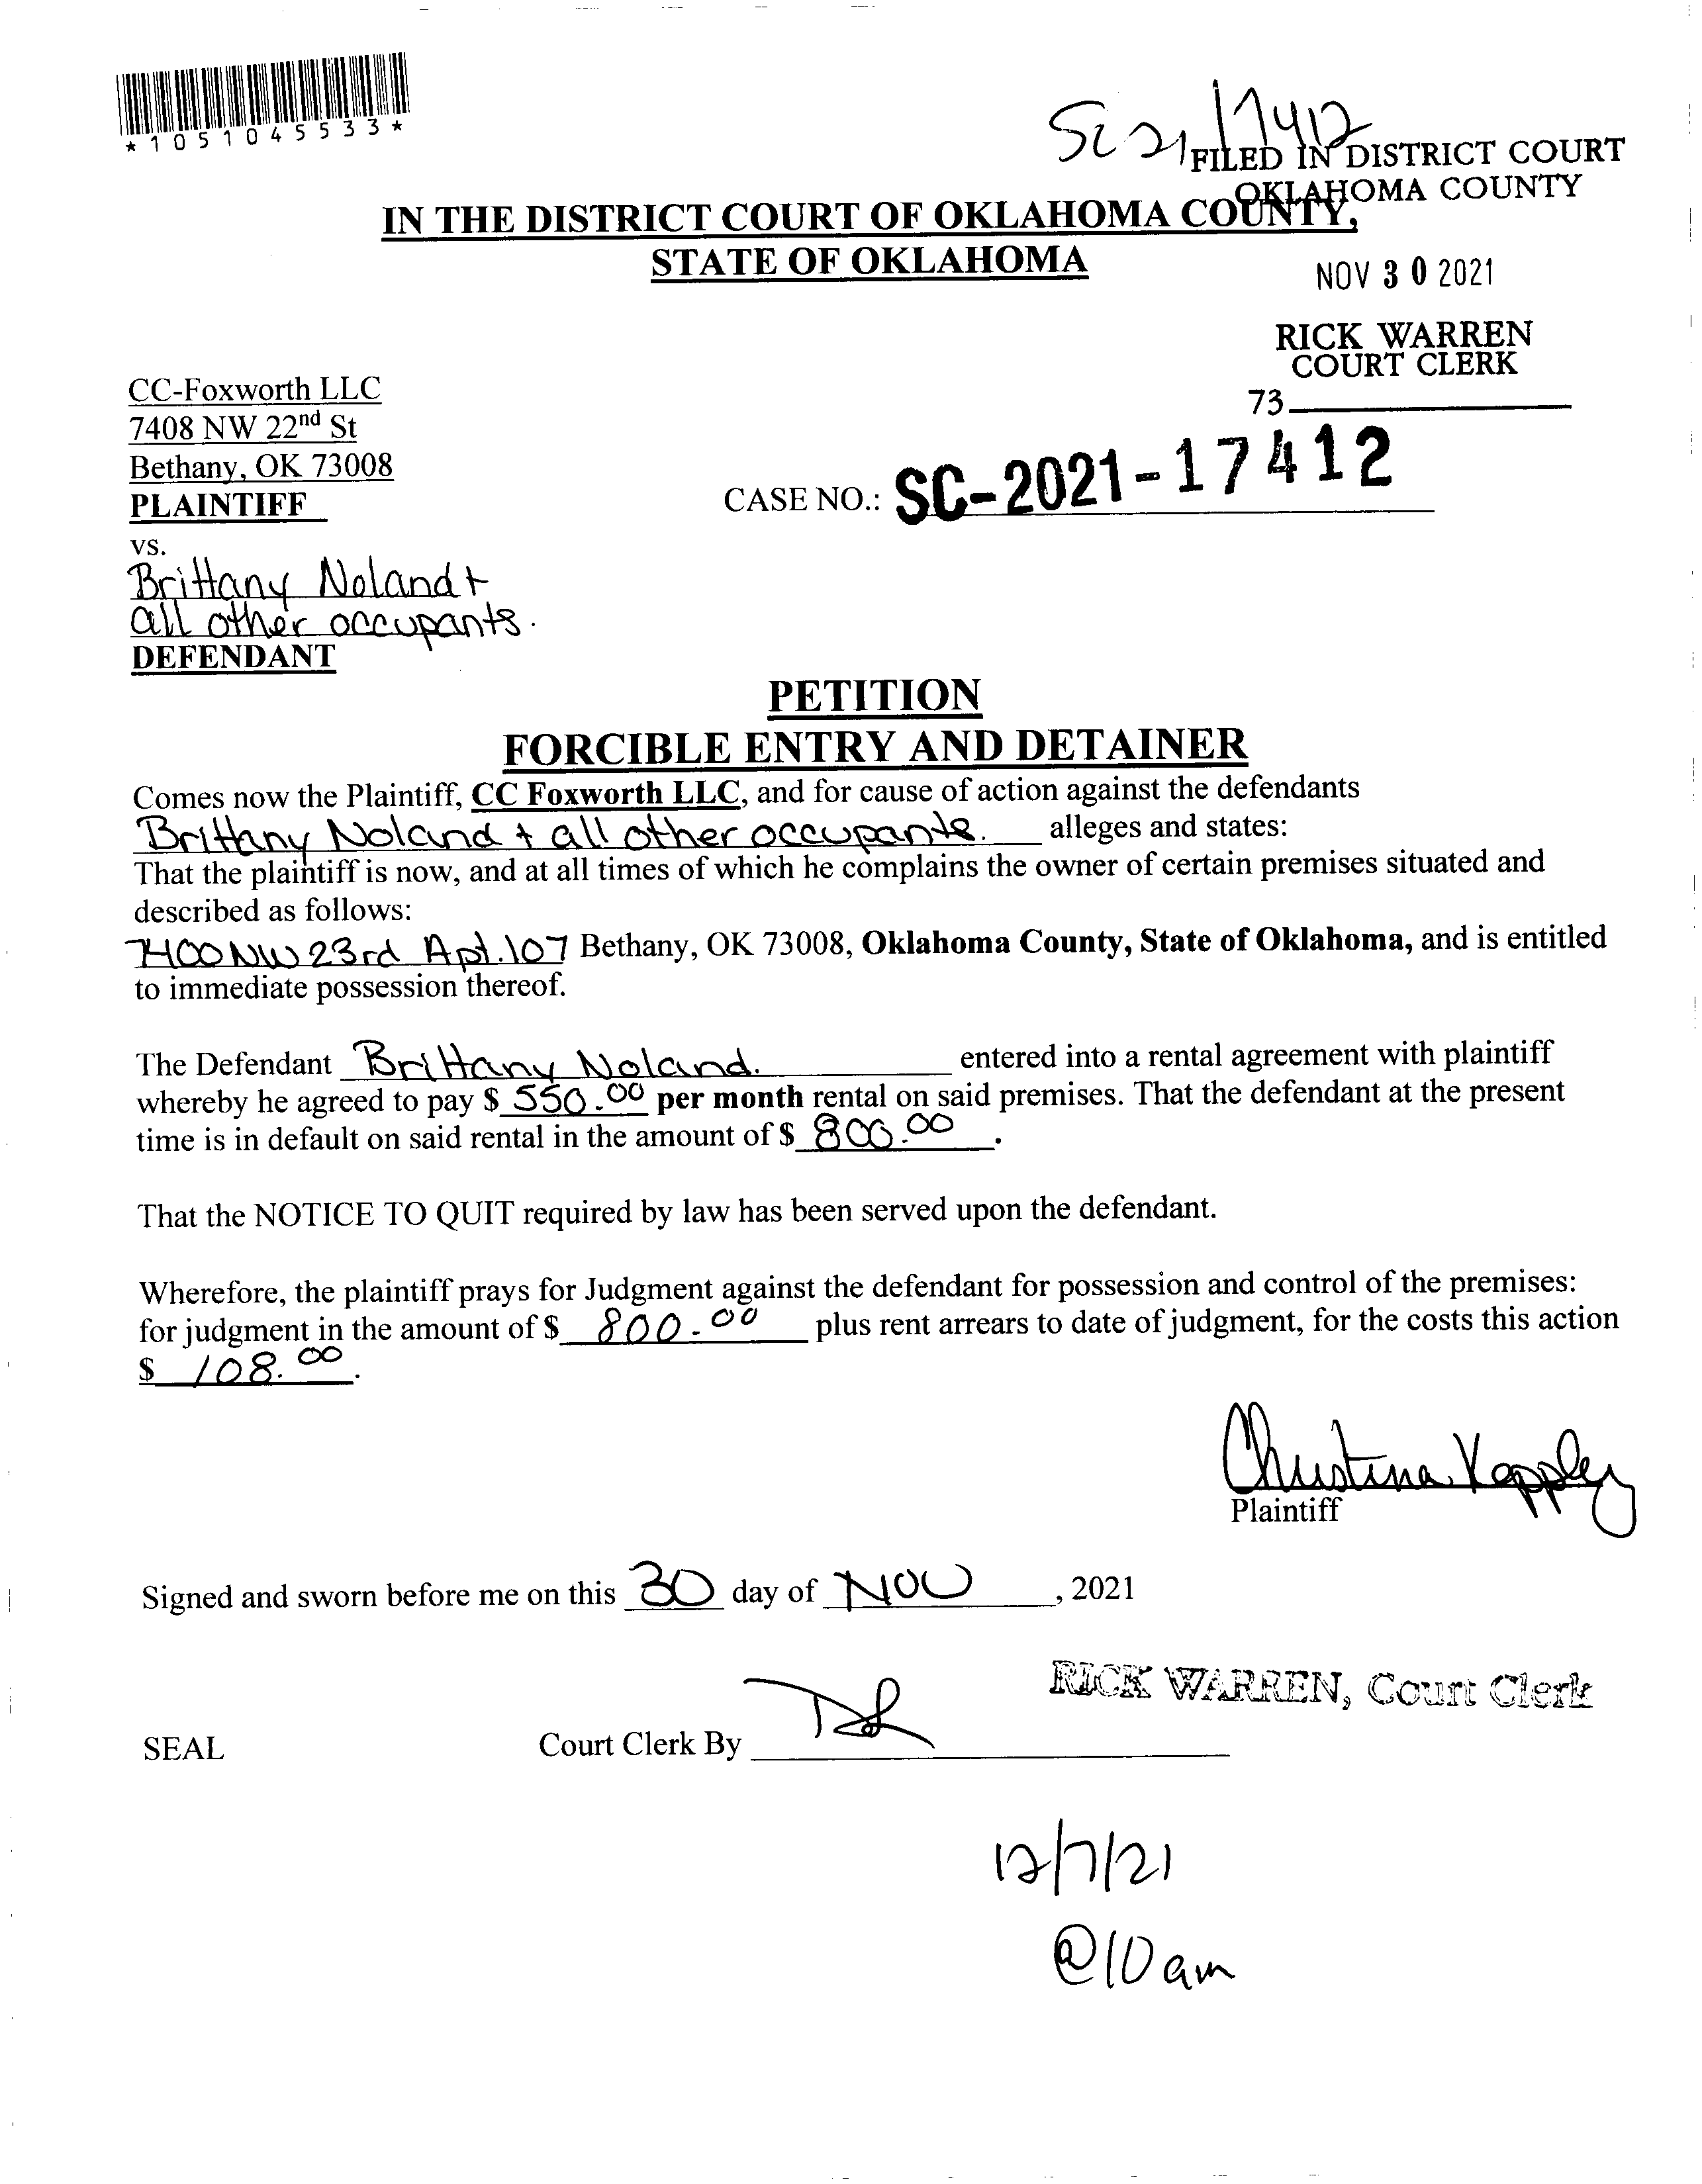 *1051045533*
SC 21/17412
FILED IN DISTRICT COURT
OKLAHOMA COUNTY
IN THE DISTRICT COURT OF OKLAHOMA COUNTY,
STATE OF OKLAHOMA
NOV 30 2021
RICK WARREN
COURT CLERK
73
CC-Foxworth LLC
7408 NW 22nd St
Bethany, OK 73008
PLAINTIFF
CASE NO.: SC-2021-17412
vs.
Brittany Noland +
all other occupants.
DEFENDANT
PETITION
FORCIBLE ENTRY AND DETAINER
Comes now the Plaintiff, CC Foxworth LLC, and for cause of action against the defendants
Brittany Noland + all other occupants. alleges and states:
That the plaintiff is now, and at all times of which he complains the owner of certain premises situated and
described as follows:
7400 NW 23rd Apt. 107 Bethany, OK 73008, Oklahoma County, State of Oklahoma, and is entitled
to immediate possession thereof.
The Defendant Brittany Noland. entered into a rental agreement with plaintiff
whereby he agreed to pay $ 550.00 per month rental on said premises. That the defendant at the present
time is in default on said rental in the amount of $ 800.00 .
That the NOTICE TO QUIT required by law has been served upon the defendant.
Wherefore, the plaintiff prays for Judgment against the defendant for possession and control of the premises:
for judgment in the amount of $ 800.00 plus rent arrears to date of judgment, for the costs this action
$ 108.00 .
Christina Keppley
Plaintiff
Signed and sworn before me on this 30 day of NOV , 2021
RICK WARREN, Court Clerk
SEAL
Court Clerk By
12/7/21
@10am